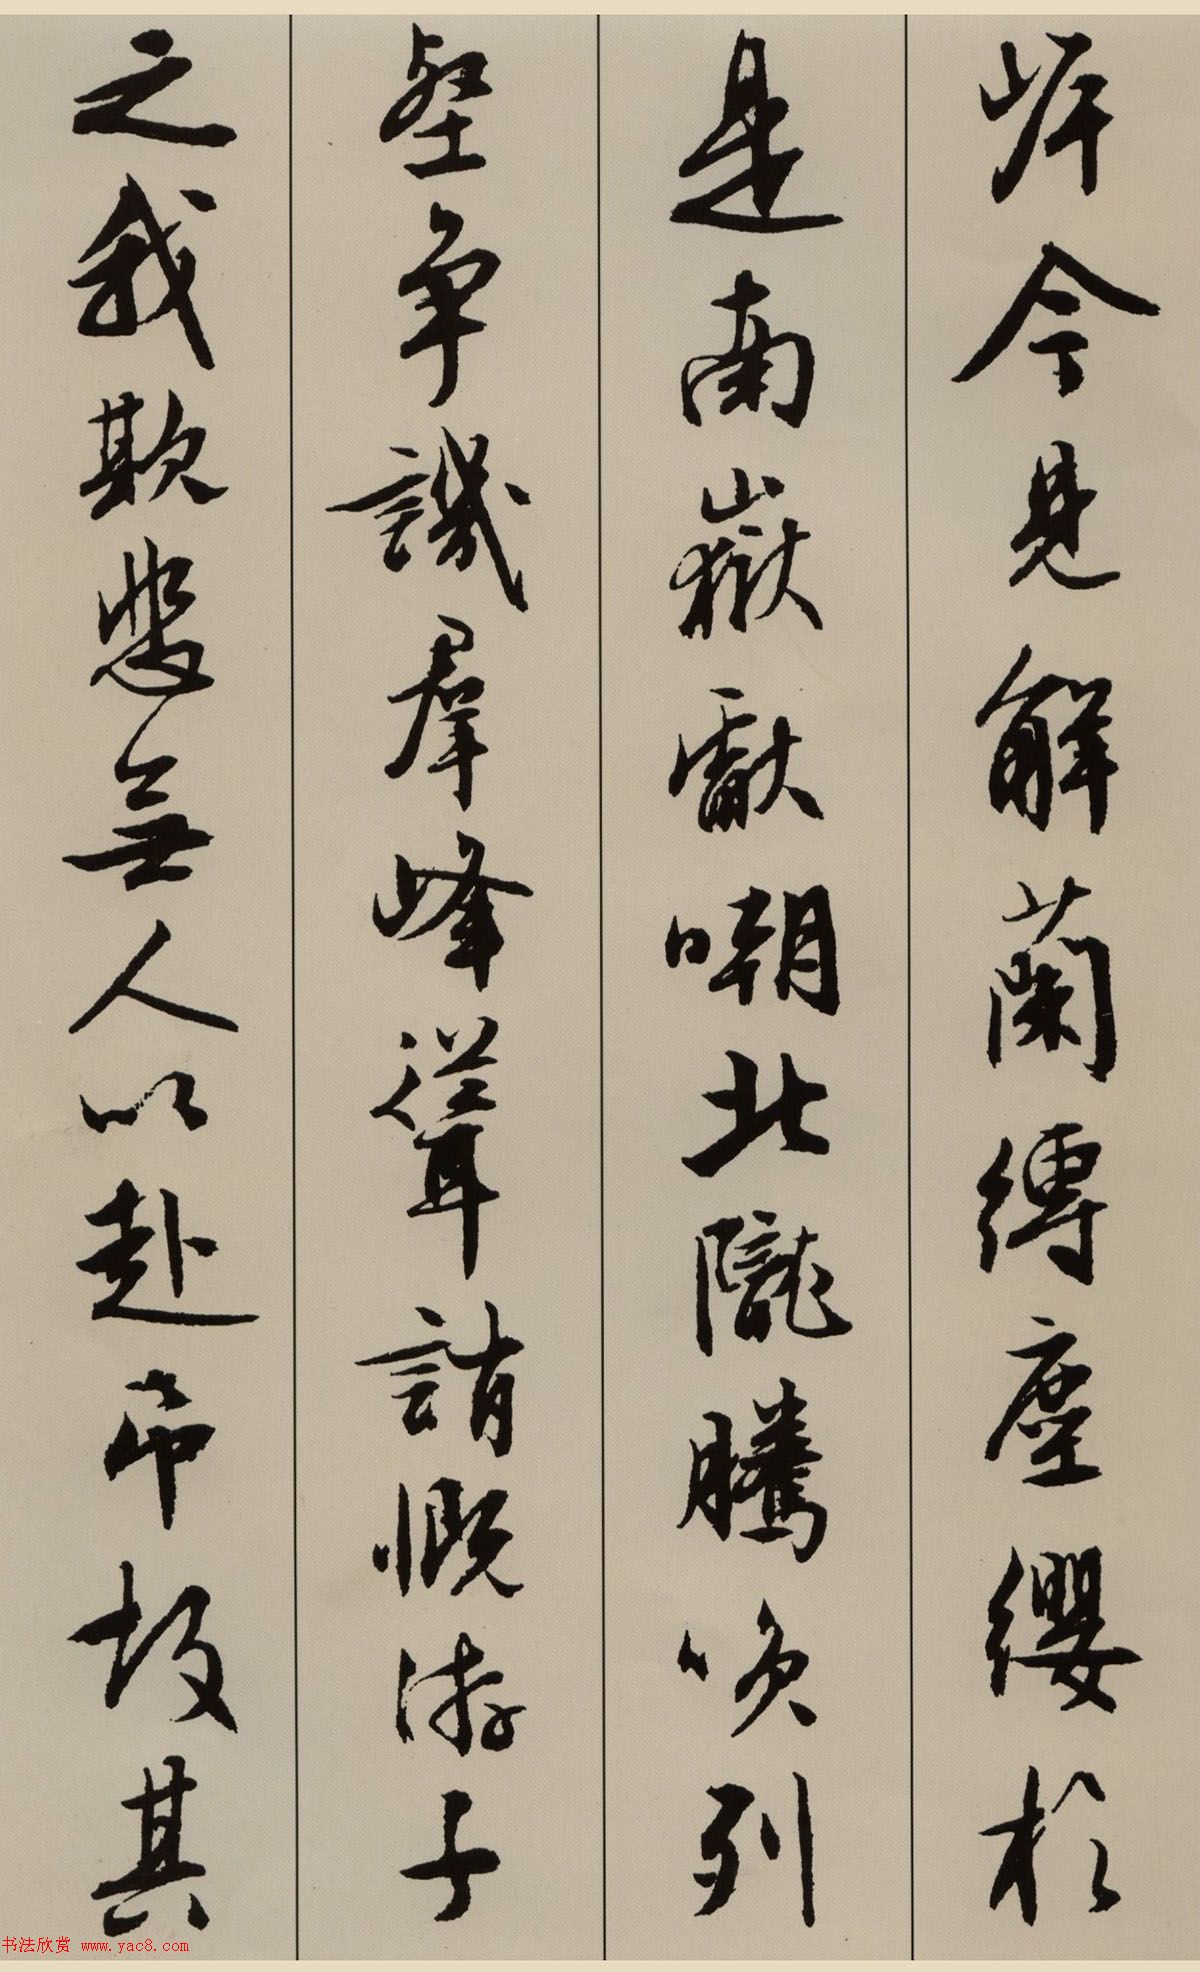 岸今見解蘭縛塵纓於
是南嶽獻嘲北隴騰笑列
壑爭譏群峰聳誚慨游子
之我欺悲無人以赴弔故其
书法欣赏 www.yac8.com